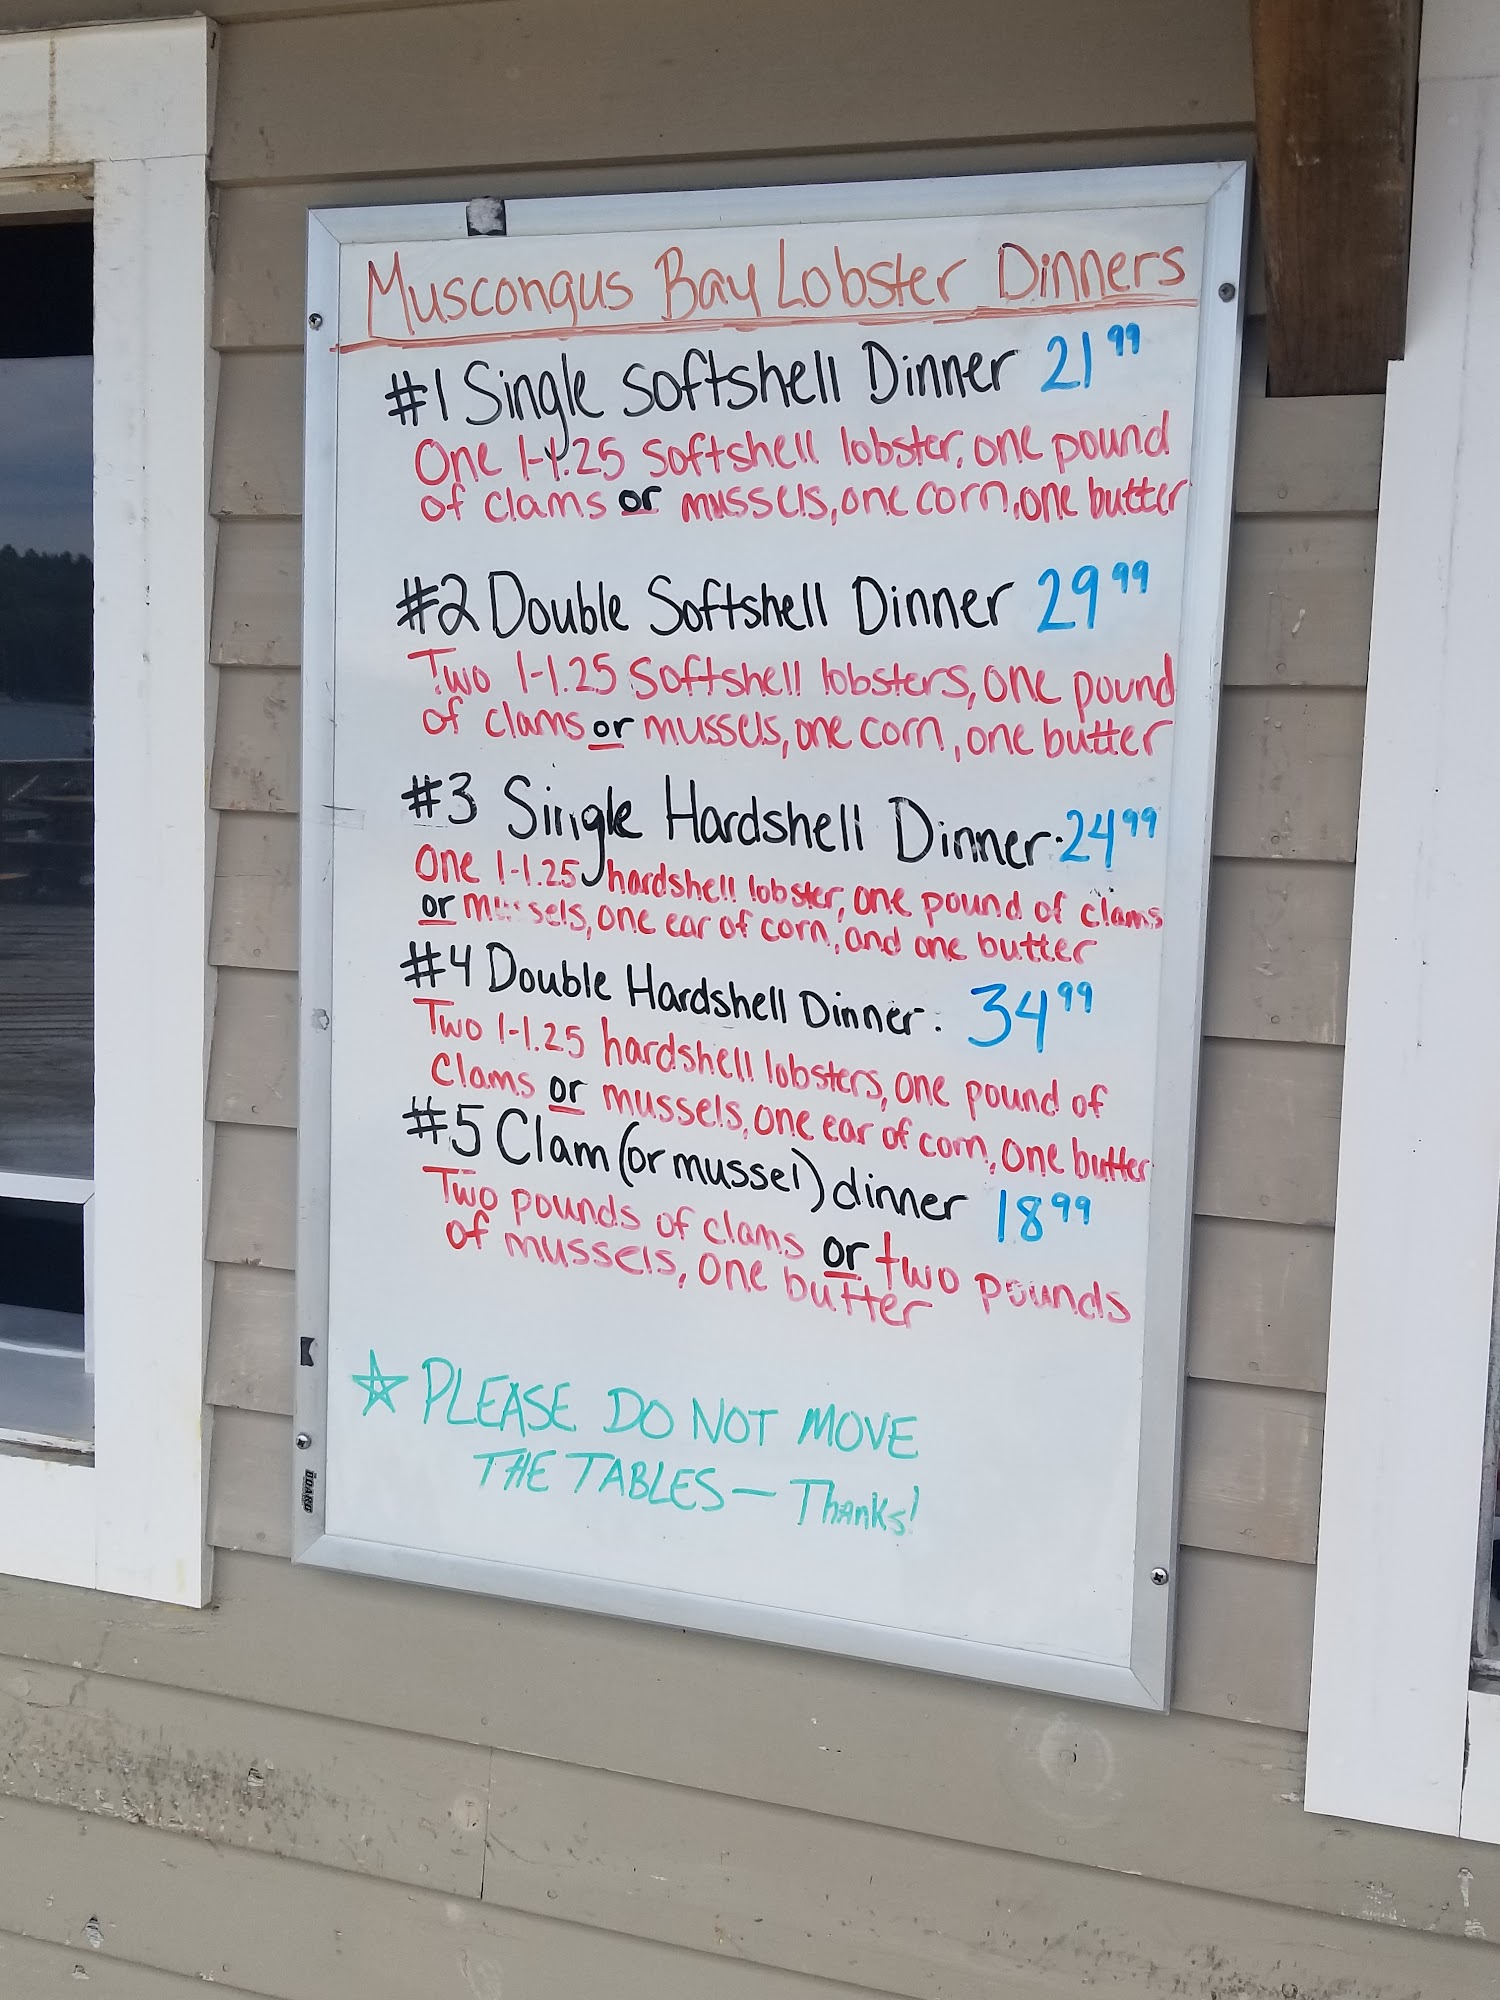 Muscongus Bay Lobster Dinners
#1 Single Softshell Dinner 21⁹⁹
One 1-1.25 softshell lobster, one pound
of clams or mussels, one corn, one butter
#2 Double Softshell Dinner 29⁹⁹
Two 1-1.25 softshell lobsters, one pound
of clams or mussels, one corn, one butter
#3 Single Hardshell Dinner. 24⁹⁹
One 1-1.25 hardshell lobster, one pound of clams
or mussels, one ear of corn, and one butter
#4 Double Hardshell Dinner: 34⁹⁹
Two 1-1.25 hardshell lobsters, one pound of
Clams or mussels, one ear of corn, one butter
#5 Clam (or mussel) dinner 18⁹⁹
Two pounds of clams or two pounds
of mussels, one butter
☆ PLEASE DO NOT MOVE
THE TABLES — Thanks!
BOARD